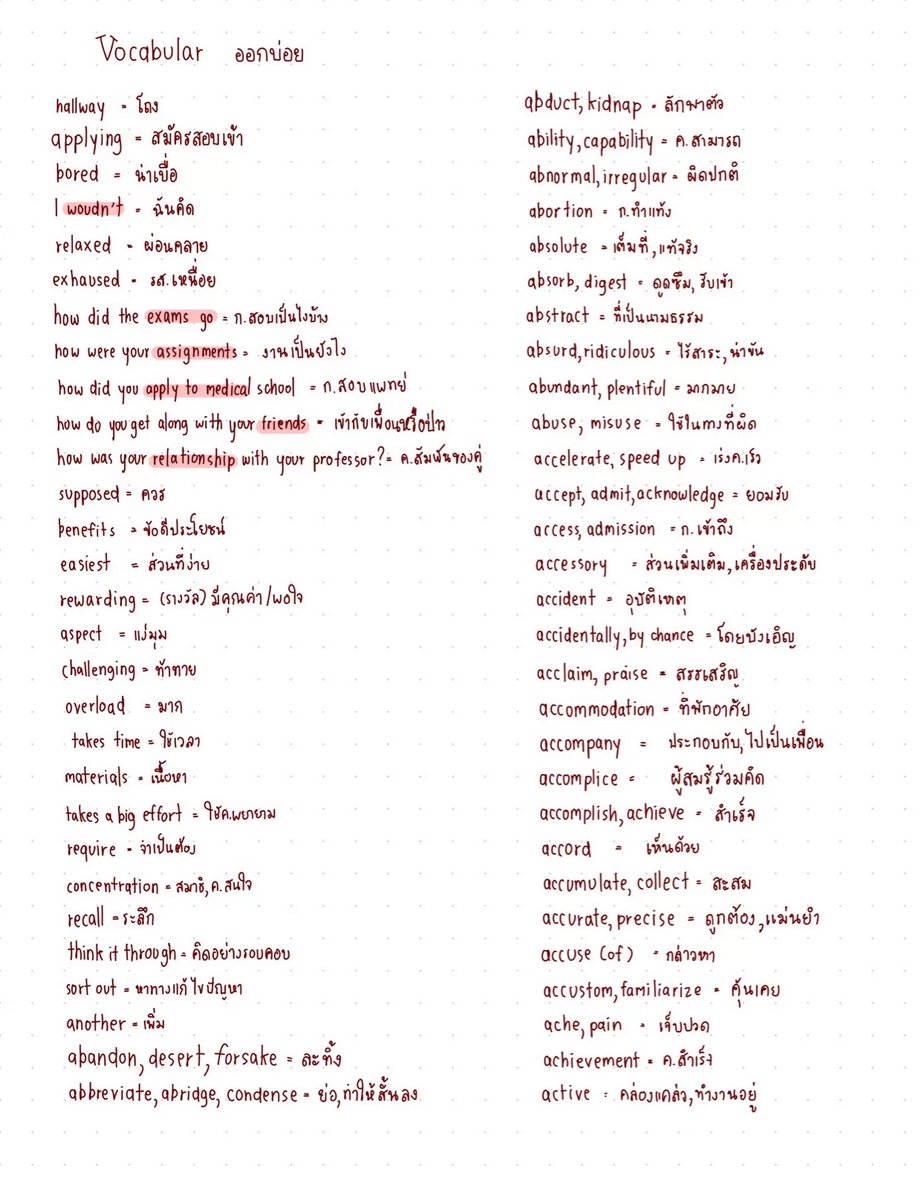 Vocabular ออกบ่อย
hallway = โถง
applying = สมัครสอบเข้า
bored = น่าเบื่อ
I woudn't = ฉันคิด
relaxed = ผ่อนคลาย
exhaused = รส.เหนื่อย
how did the exams go = ก.สอบเป็นไงบ้าง
how were your assignments = งานเป็นยังไง
how did you apply to medical school = ก.สอบแพทย์
how do you get along with your friends = เข้ากับเพื่อนหรือป่าว
how was your relationship with your professor? = ค.สัมพันของคู่
supposed = ควร
benefits = ข้อดีประโยชน์
easiest = ส่วนที่ง่าย
rewarding = (รางวัล) มีคุณค่า/พอใจ
aspect = แง่มุม
challenging = ท้าทาย
overload = มาก
takes time = ใช้เวลา
materials = เนื้อหา
takes a big effort = ใช้ค.พยายาม
require = จำเป็นต้อง
concentration = สมาธิ, ค.สนใจ
recall = ระลึก
think it through = คิดอย่างรอบคอบ
sort out = หาทางแก้ไขปัญหา
another = เพิ่ม
abandon, desert, forsake = ละทิ้ง
abbreviate, abridge, condense = ย่อ, ทำให้สั้นลง
abduct, kidnap = ลักพาตัว
ability, capability = ค.สามารถ
abnormal, irregular = ผิดปกติ
abortion = ก.ทำแท้ง
absolute = เต็มที่, แท้จริง
absorb, digest = ดูดซึม, รับเข้า
abstract = ที่เป็นนามธรรม
absurd, ridiculous = ไร้สาระ, น่าขัน
abundant, plentiful = มากมาย
abuse, misuse = ใช้ในทางที่ผิด
accelerate, speed up = เร่งค.เร็ว
accept, admit, acknowledge = ยอมรับ
access, admission = ก.เข้าถึง
accessory = ส่วนเพิ่มเติม, เครื่องประดับ
accident = อุบัติเหตุ
accidentally, by chance = โดยบังเอิญ
acclaim, praise = สรรเสริญ
accommodation = ที่พักอาศัย
accompany = ประกอบกับ, ไปเป็นเพื่อน
accomplice = ผู้สมรู้ร่วมคิด
accomplish, achieve = สำเร็จ
accord = เห็นด้วย
accumulate, collect = สะสม
accurate, precise = ถูกต้อง, แม่นยำ
accuse (of) = กล่าวหา
accustom, familiarize = คุ้นเคย
ache, pain = เจ็บปวด
achievement = ค.สำเร็จ
active = คล่องแคล่ว, ทำงานอยู่